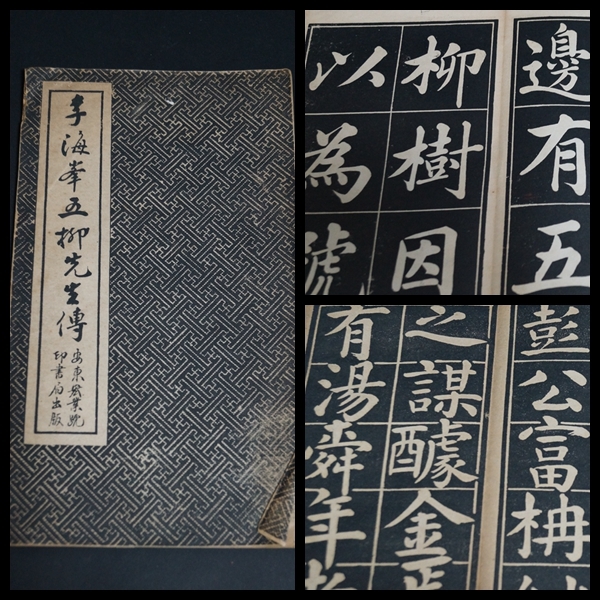 李海峯五柳先生傳
安東興業號
印書局出版
邊有五
柳樹因
以為號
彭公富枏
之謀醵金
有湯舜年